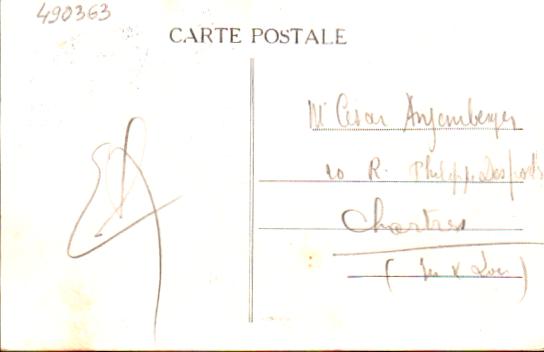 490363
CARTE POSTALE
Mr Cesar Anjemberger
10 R. Philippe Desportes
Chartres
(Eure & Loir)